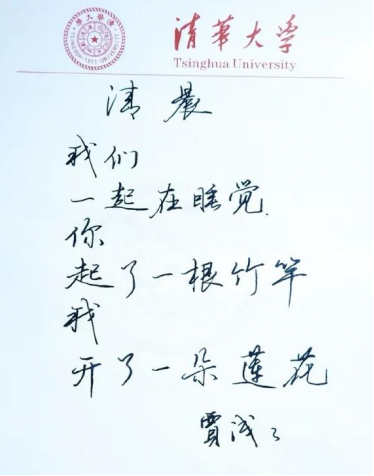 清华大学
Tsinghua University
清晨
我们
一起在睡觉
你
起了一根竹竿
我
开了一朵莲花
賈浅々